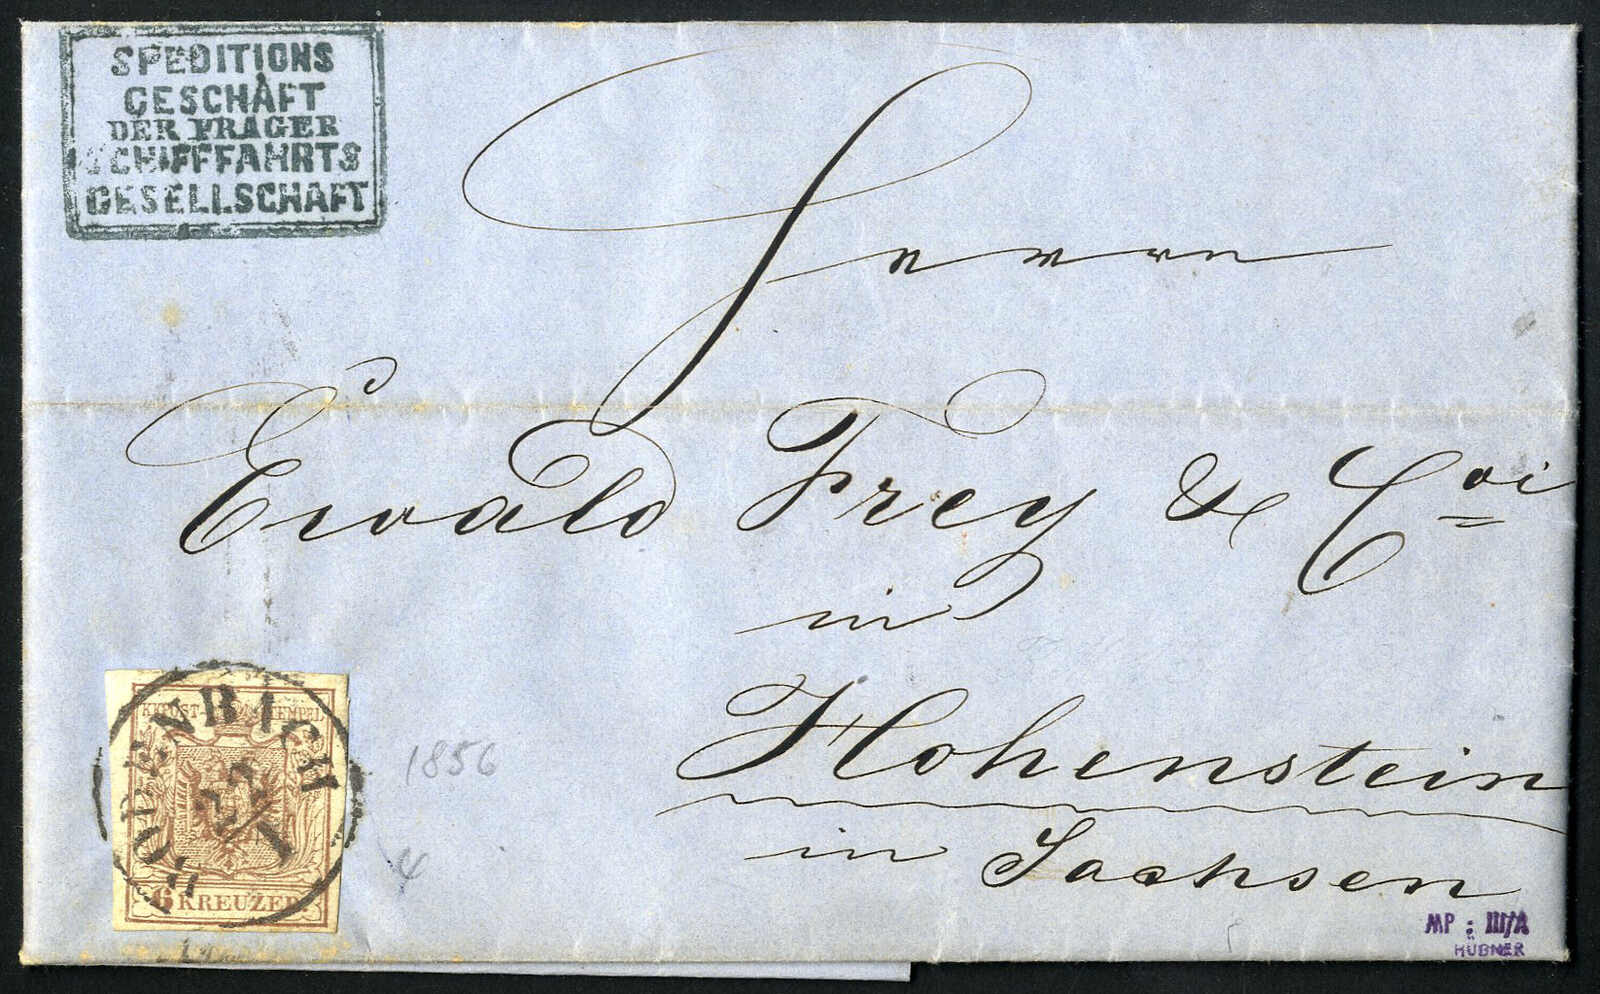 SPEDITIONS
GESCHÄFT
DER PRAGER
SCHIFFFAHRTS
GESELLSCHAFT
Herrn
Ewald Frey & Coi
in
Hohenstein
in Sachsen
BODENBACH
22/1
STEMPEL
6 KREUZER
1856
MP: III/A
HÜBNER